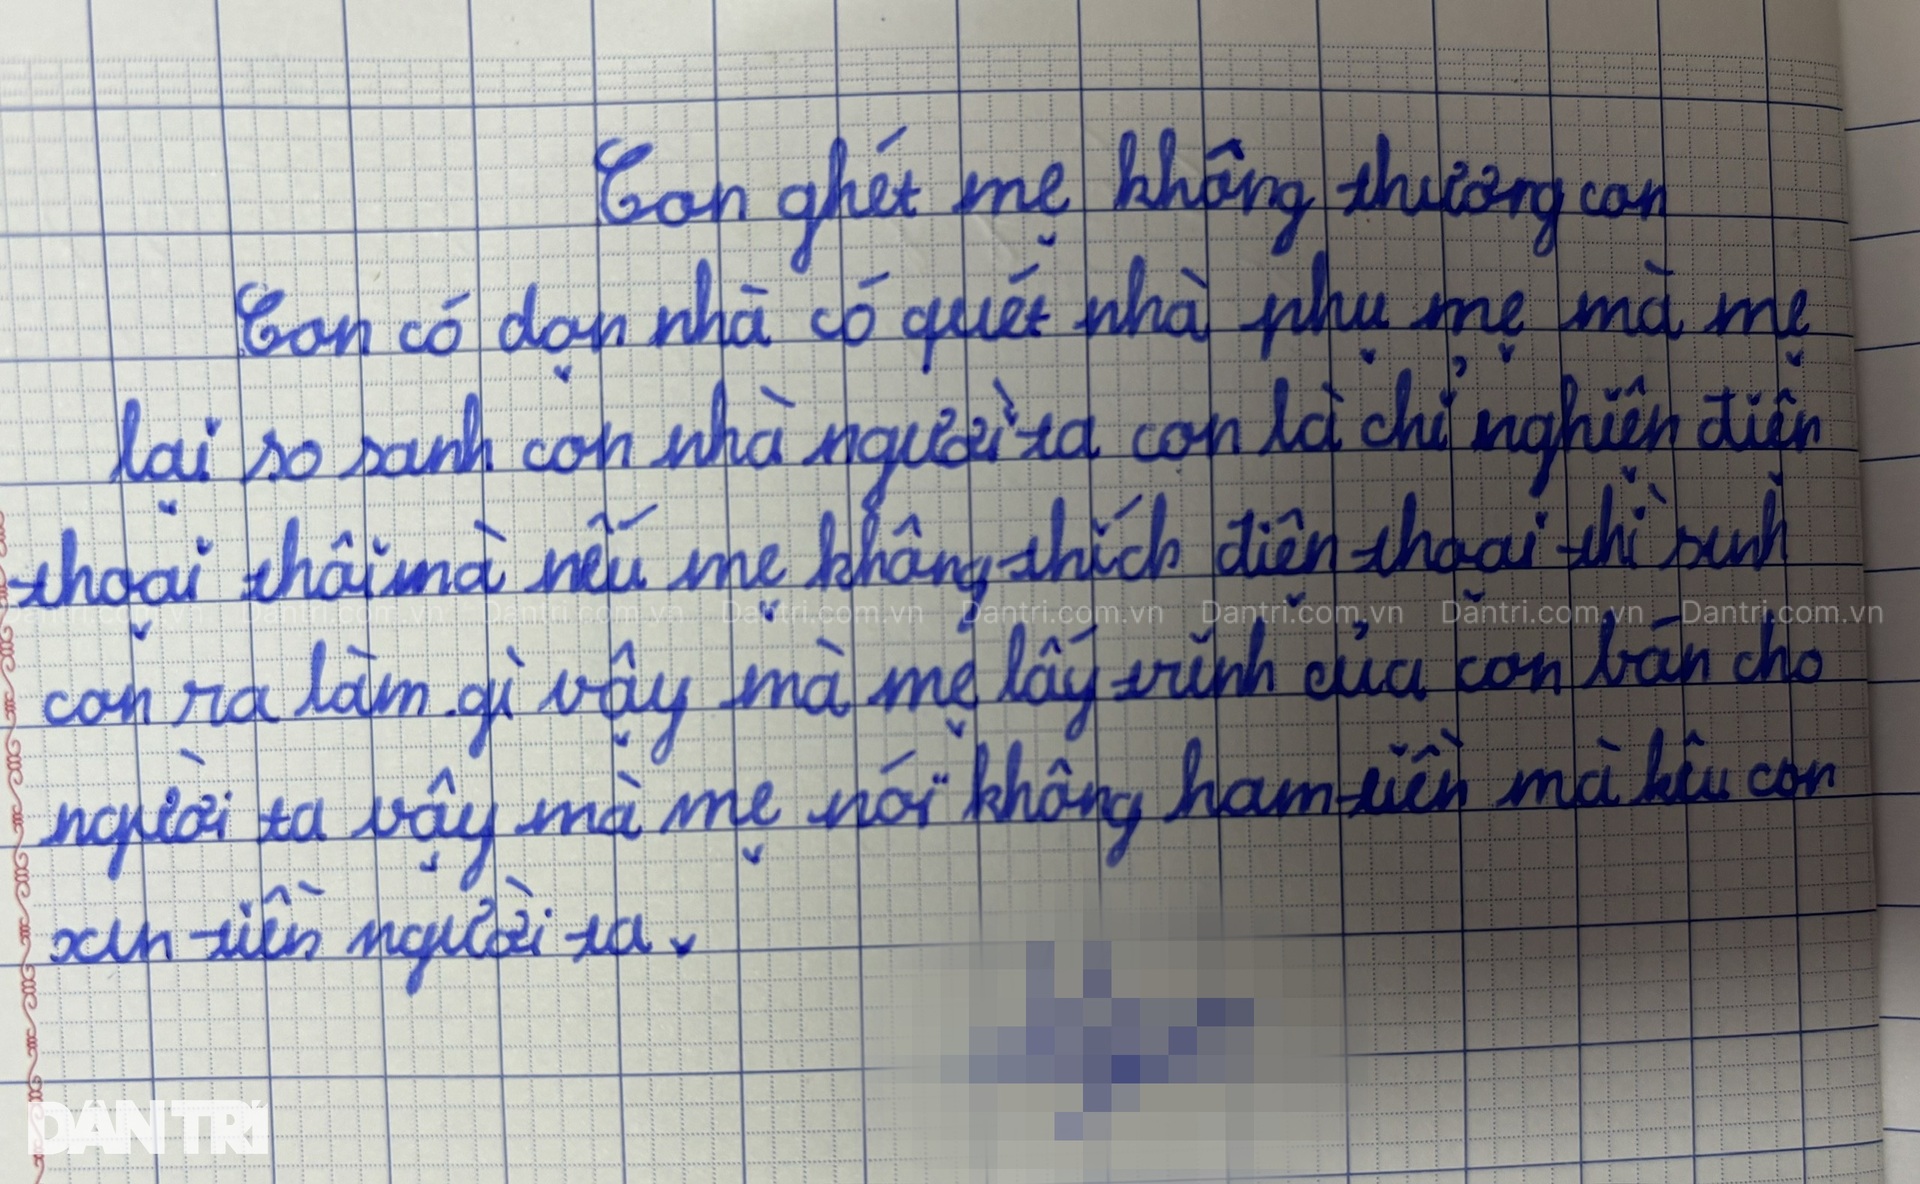 Con ghét mẹ không thương con
Con có dọn nhà có quét nhà phụ mẹ mà mẹ
lại so sanh con nhà người ta con là chỉ nghiện điện
thoại thôi mà nếu mẹ không thích điện thoại thì sinh
con ra làm gì vậy mà mẹ lấy hình của con bán cho
người ta vậy mà mẹ nói không ham tiền mà kêu con
xin tiền người ta.
Dantri.com.vn Dantri.com.vn Dantri.com.vn Dantri.com.vn Dantri.com.vn Dantri.com.vn Dantri.com.vn Dantri.com.vn
DÂN TRÍ